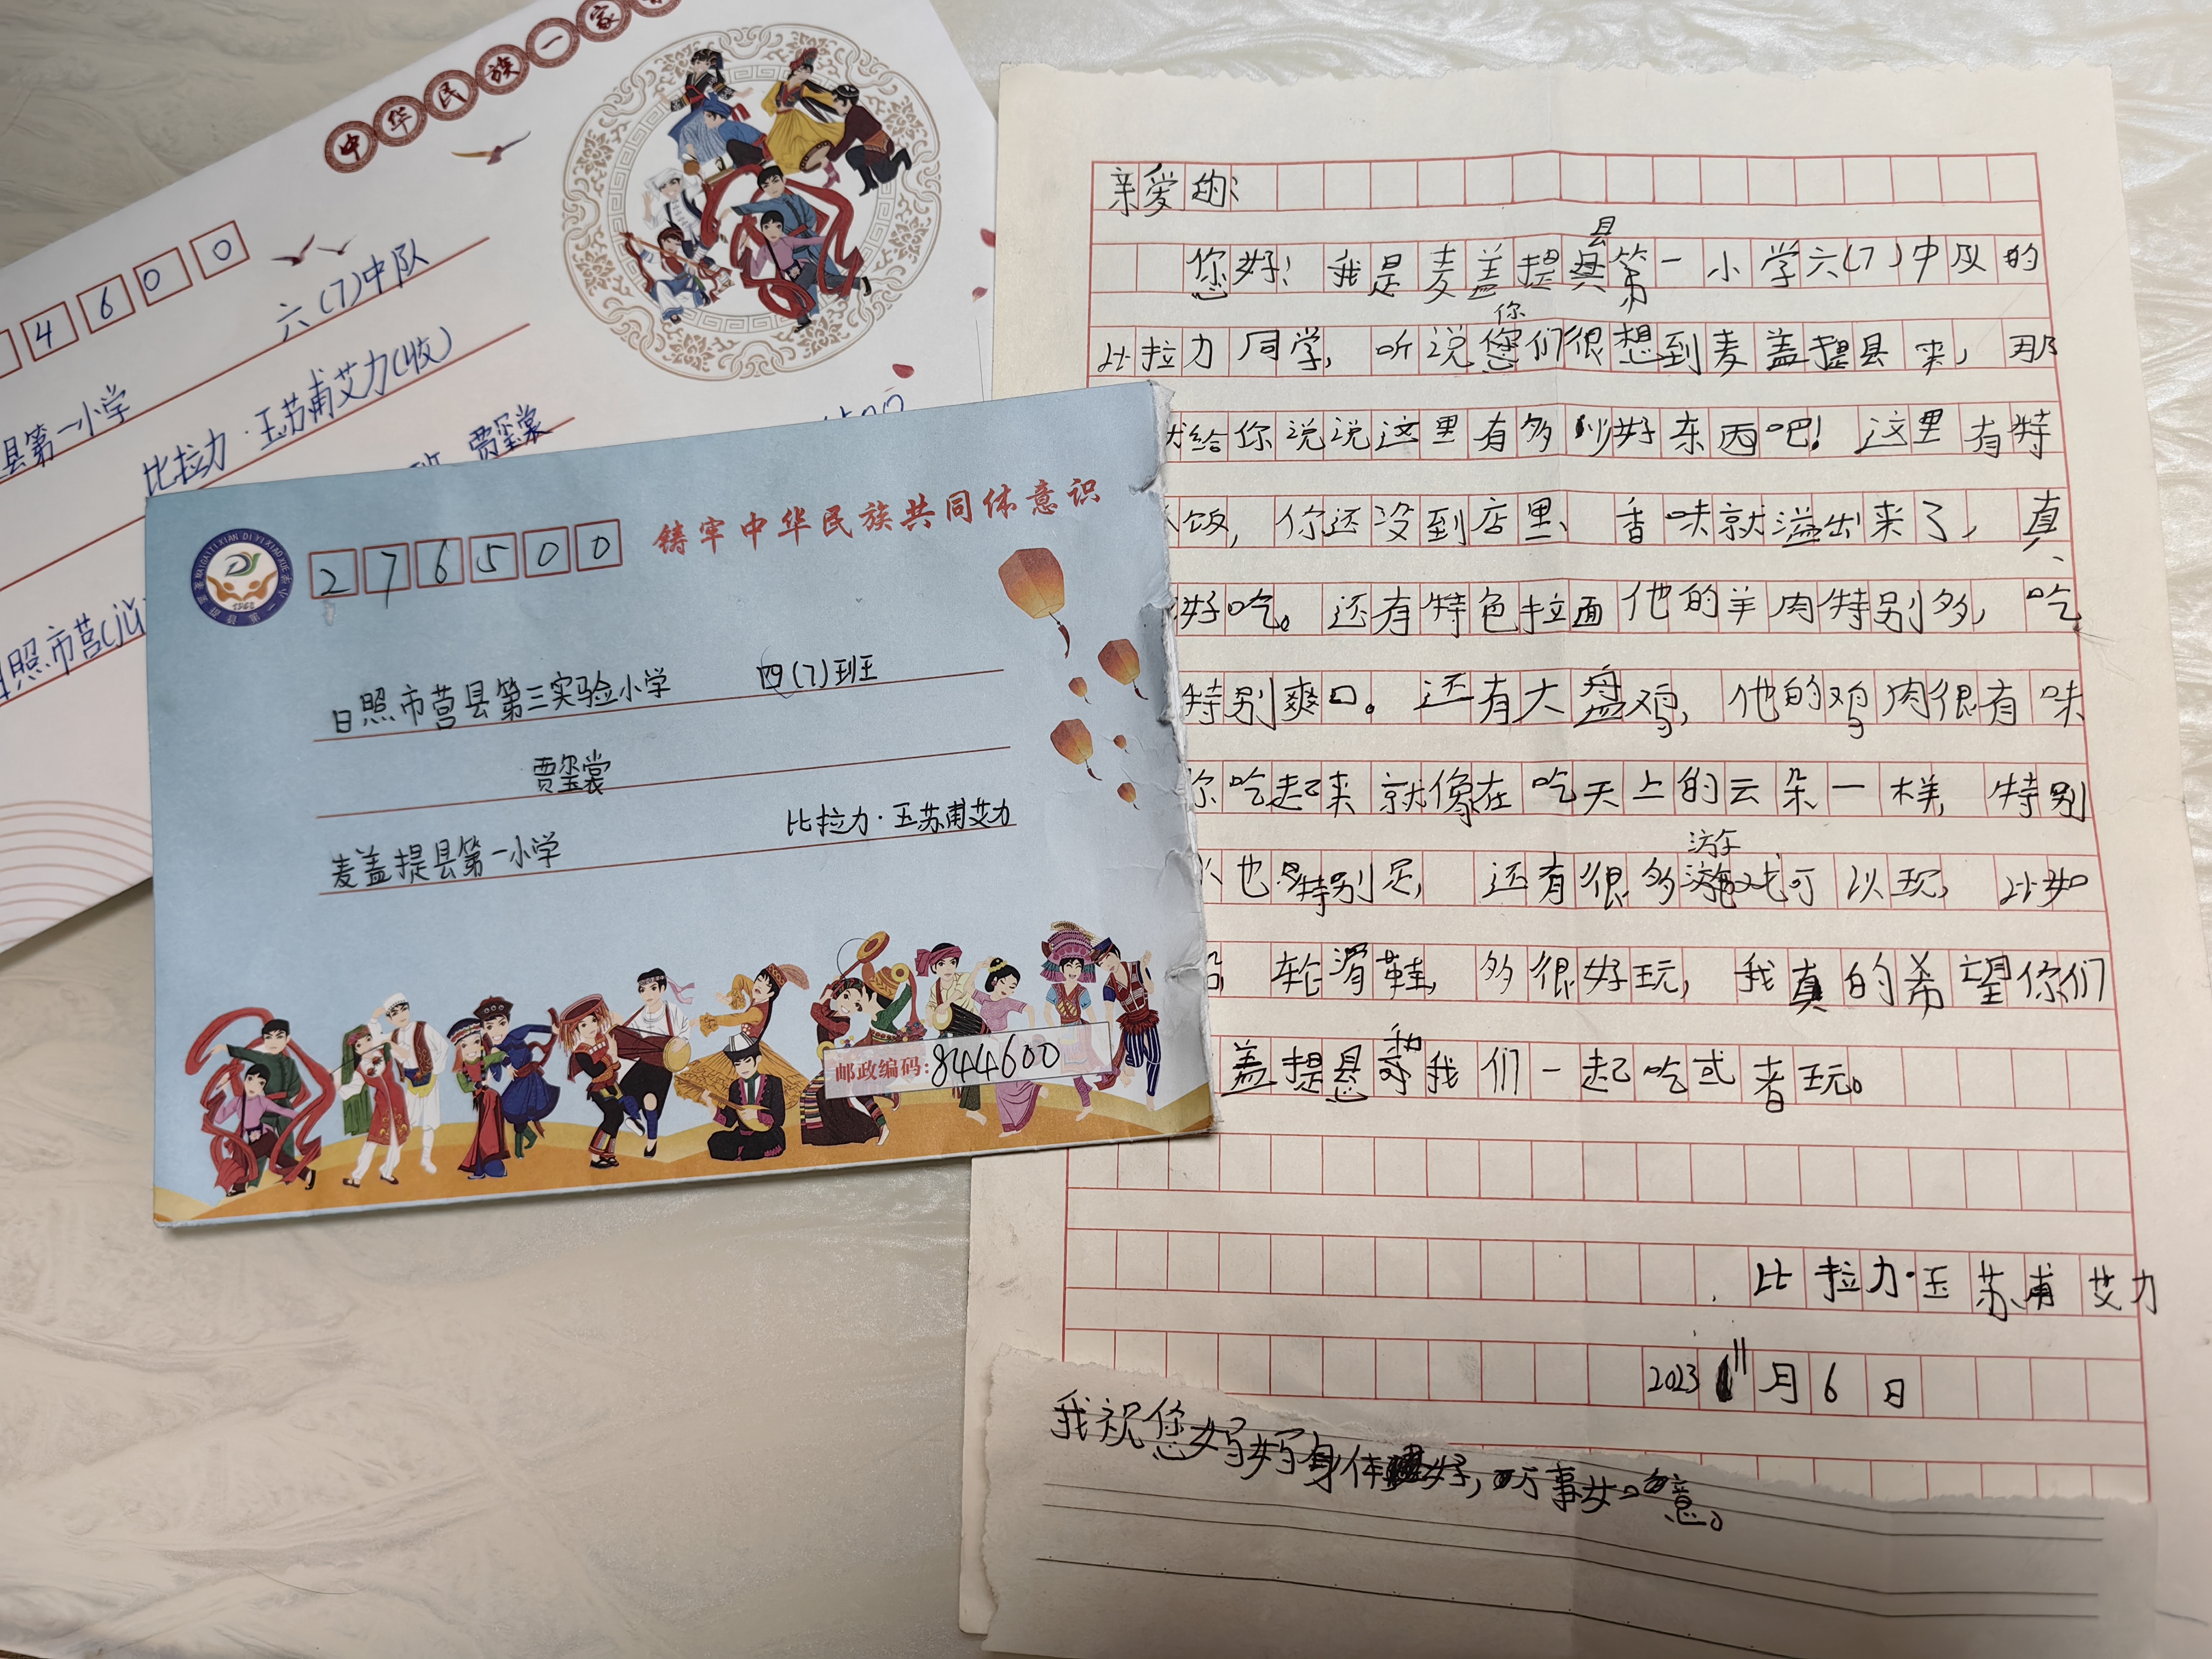 中华民族一家
4600
六(7)中队
县第一小学
比拉力·玉苏甫艾力(收)
贾玺裳
照市莒
铸牢中华民族共同体意识
MAIGAITI XIAN DI YI XIAO XUE
276500
日照市莒县第三实验小学 四(7)班
贾玺裳
比拉力·玉苏甫艾力
麦盖提县第一小学
邮政编码:844600
亲爱的:
您好!我是麦盖提县第一小学六(7)中队的
比拉力同学,听说你们很想到麦盖提县来,那
给你说说这里有多少好东西吧!这里有特
饭,你还没到店里、香味就溢出来了,真
好吃。还有特色拉面他的羊肉特别多,吃
特别爽口。还有大盘鸡,他的鸡肉很有味
你吃起来就像在吃天上的云朵一样,特别
也是特别足,还有很多游戏可以玩,比如
轮滑鞋,多很好玩,我真的希望你们
盖提县和我们一起吃或者玩。
比拉力·玉苏甫艾力
2023 11月6日
我祝您妈妈身体好,万事如意。